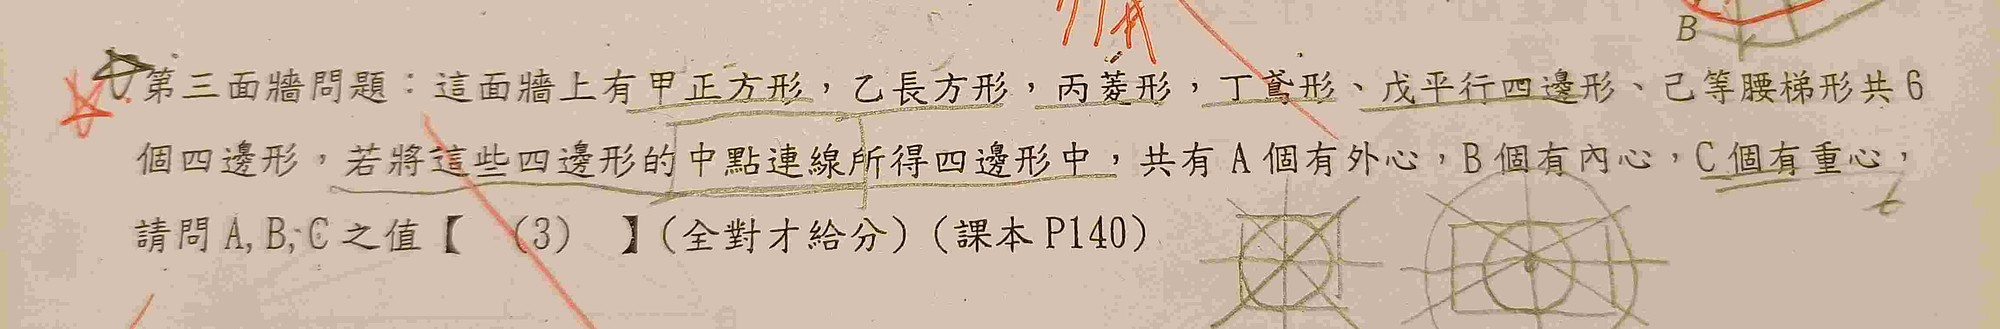 B
第三面牆問題：這面牆上有甲正方形，乙長方形，丙菱形，丁鳶形、戊平行四邊形、己等腰梯形共6
個四邊形，若將這些四邊形的中點連線所得四邊形中，共有A個有外心，B個有內心，C個有重心，
請問A,B,C之值【 (3) 】(全對才給分)(課本P140)